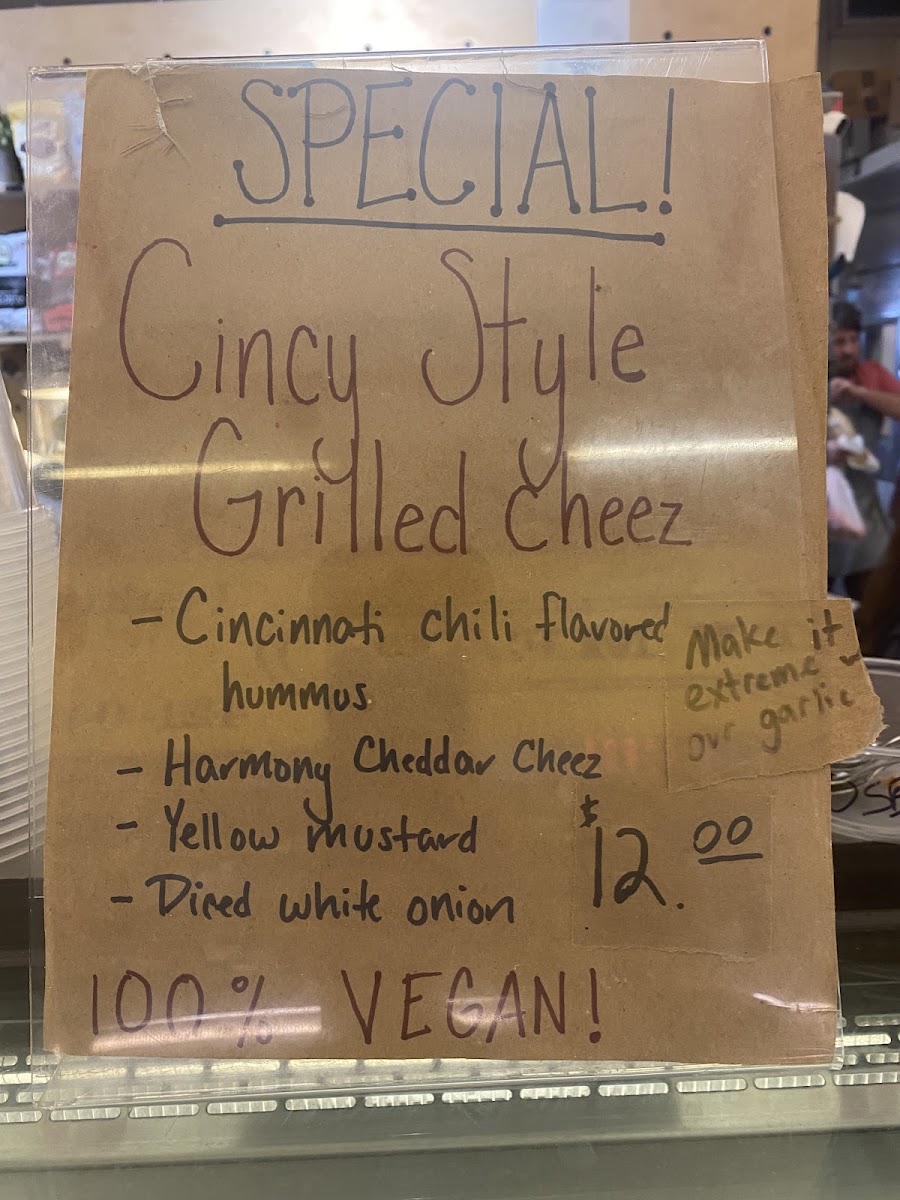 SPECIAL!
Cincy Style
Grilled cheez
- Cincinnati chili flavored
hummus
- Harmony Cheddar Cheez
- Yellow mustard
- Diced white onion
Make it
extreme w
our garlic
$12.00
100% VEGAN!